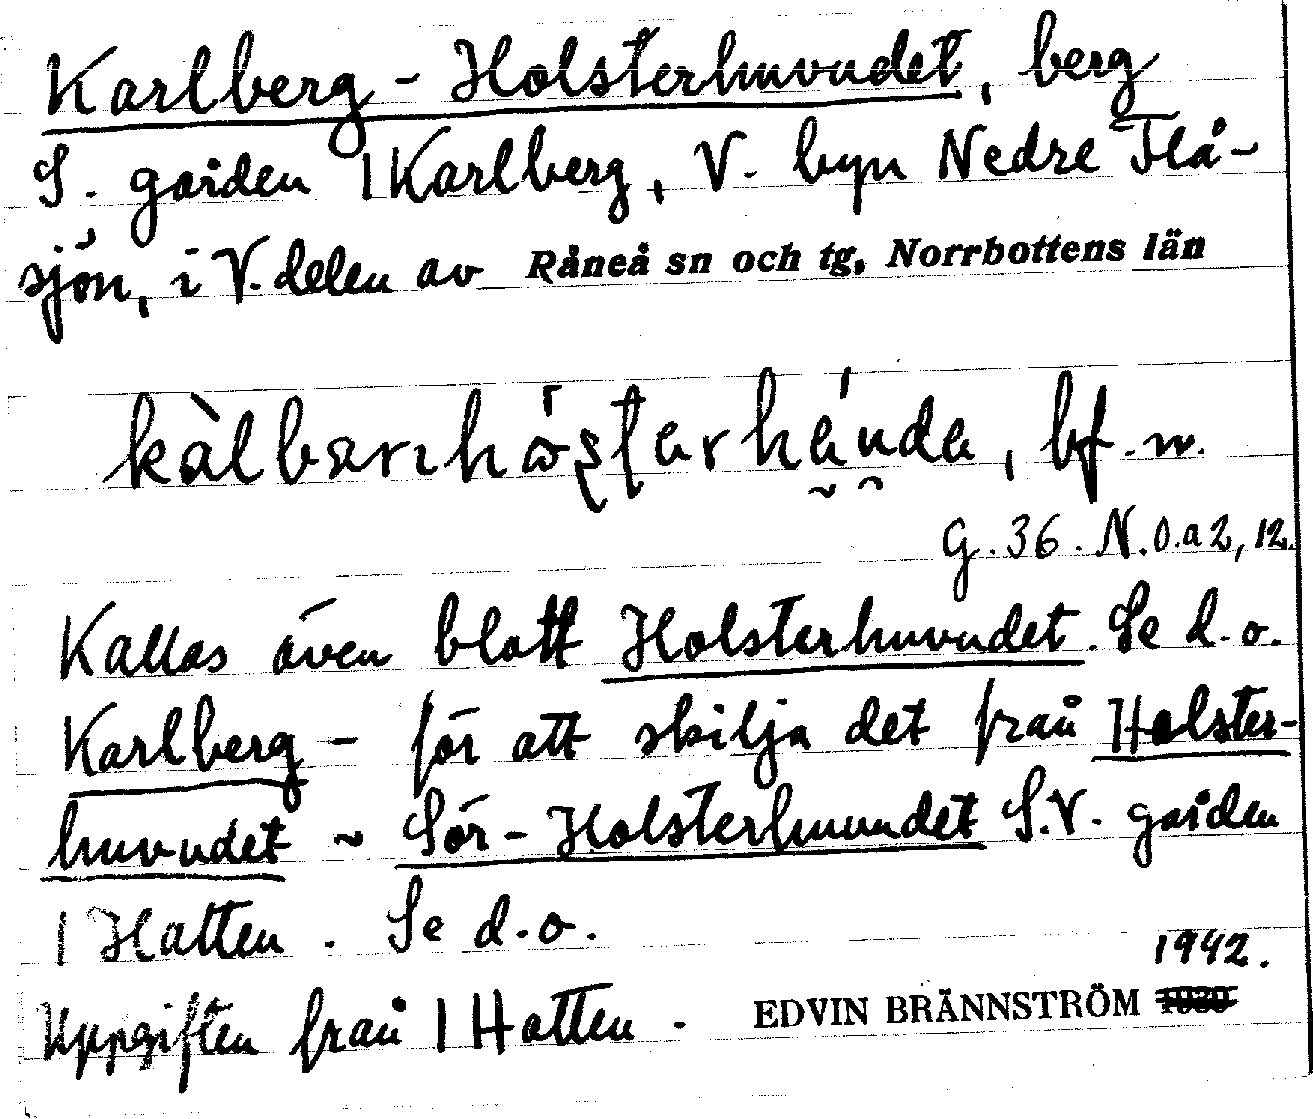 Karlberg - Holsterhuvudet, berg
S. gården 1 Karlberg, V. byn Nedre Flå-
sjön, i V. delen av Råneå sn och tg, Norrbottens län
kàlbærɲhòʂtərhə́nda, bf. n.
G. 36. N.O.a 2, 12.
Kallas även blott Holsterhuvudet. Se d.o.
Karlberg - för att skilja det från Holster-
huvudet ~ Sör-Holsterhuvudet S.V. gården
1 Hatten. Se d.o.
1942.
Uppgiften från 1 Hatten. EDVIN BRÄNNSTRÖM 1930